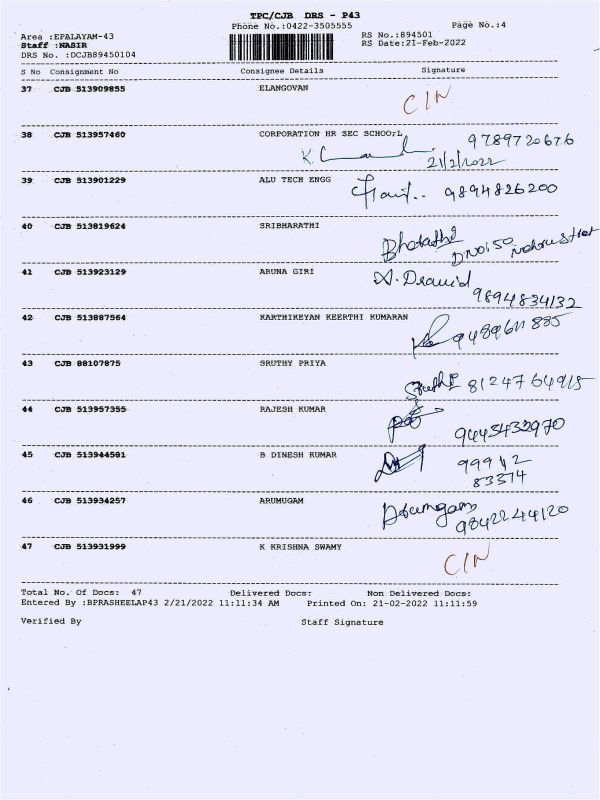 TPC/CJB DRS - P43
Phone No.:0422-3505555 Page No.:4
Area :EPALAYAM-43 RS No.:894501
Staff :NASIR RS Date:21-Feb-2022
DRS No. :DCJB89450104
S No Consignment No Consignee Details Signature
37 CJB 513909855 ELANGOVAN C/N
38 CJB 513957460 CORPORATION HR SEC SCHOO;L 9789720676
21/2/2022
39 CJB 513901229 ALU TECH ENGG 9894826200
40 CJB 513819624 SRIBHARATHI
Bharathi D.No:50
41 CJB 513923129 ARUNA GIRI A. Dravid
9894834132
42 CJB 513887564 KARTHIKEYAN KEERTHI KUMARAN
9489611885
43 CJB 88107875 SRUTHY PRIYA
Sruthi 8124764915
44 CJB 513957355 RAJESH KUMAR
9445432970
45 CJB 513944501 B DINESH KUMAR 99942
83374
46 CJB 513934257 ARUMUGAM Arumugam
9842244120
47 CJB 513931999 K KRISHNA SWAMY C/N
Total No. Of Docs: 47 Delivered Docs: Non Delivered Docs:
Entered By :BPRASHEELAP43 2/21/2022 11:11:34 AM Printed On: 21-02-2022 11:11:59
Verified By Staff Signature